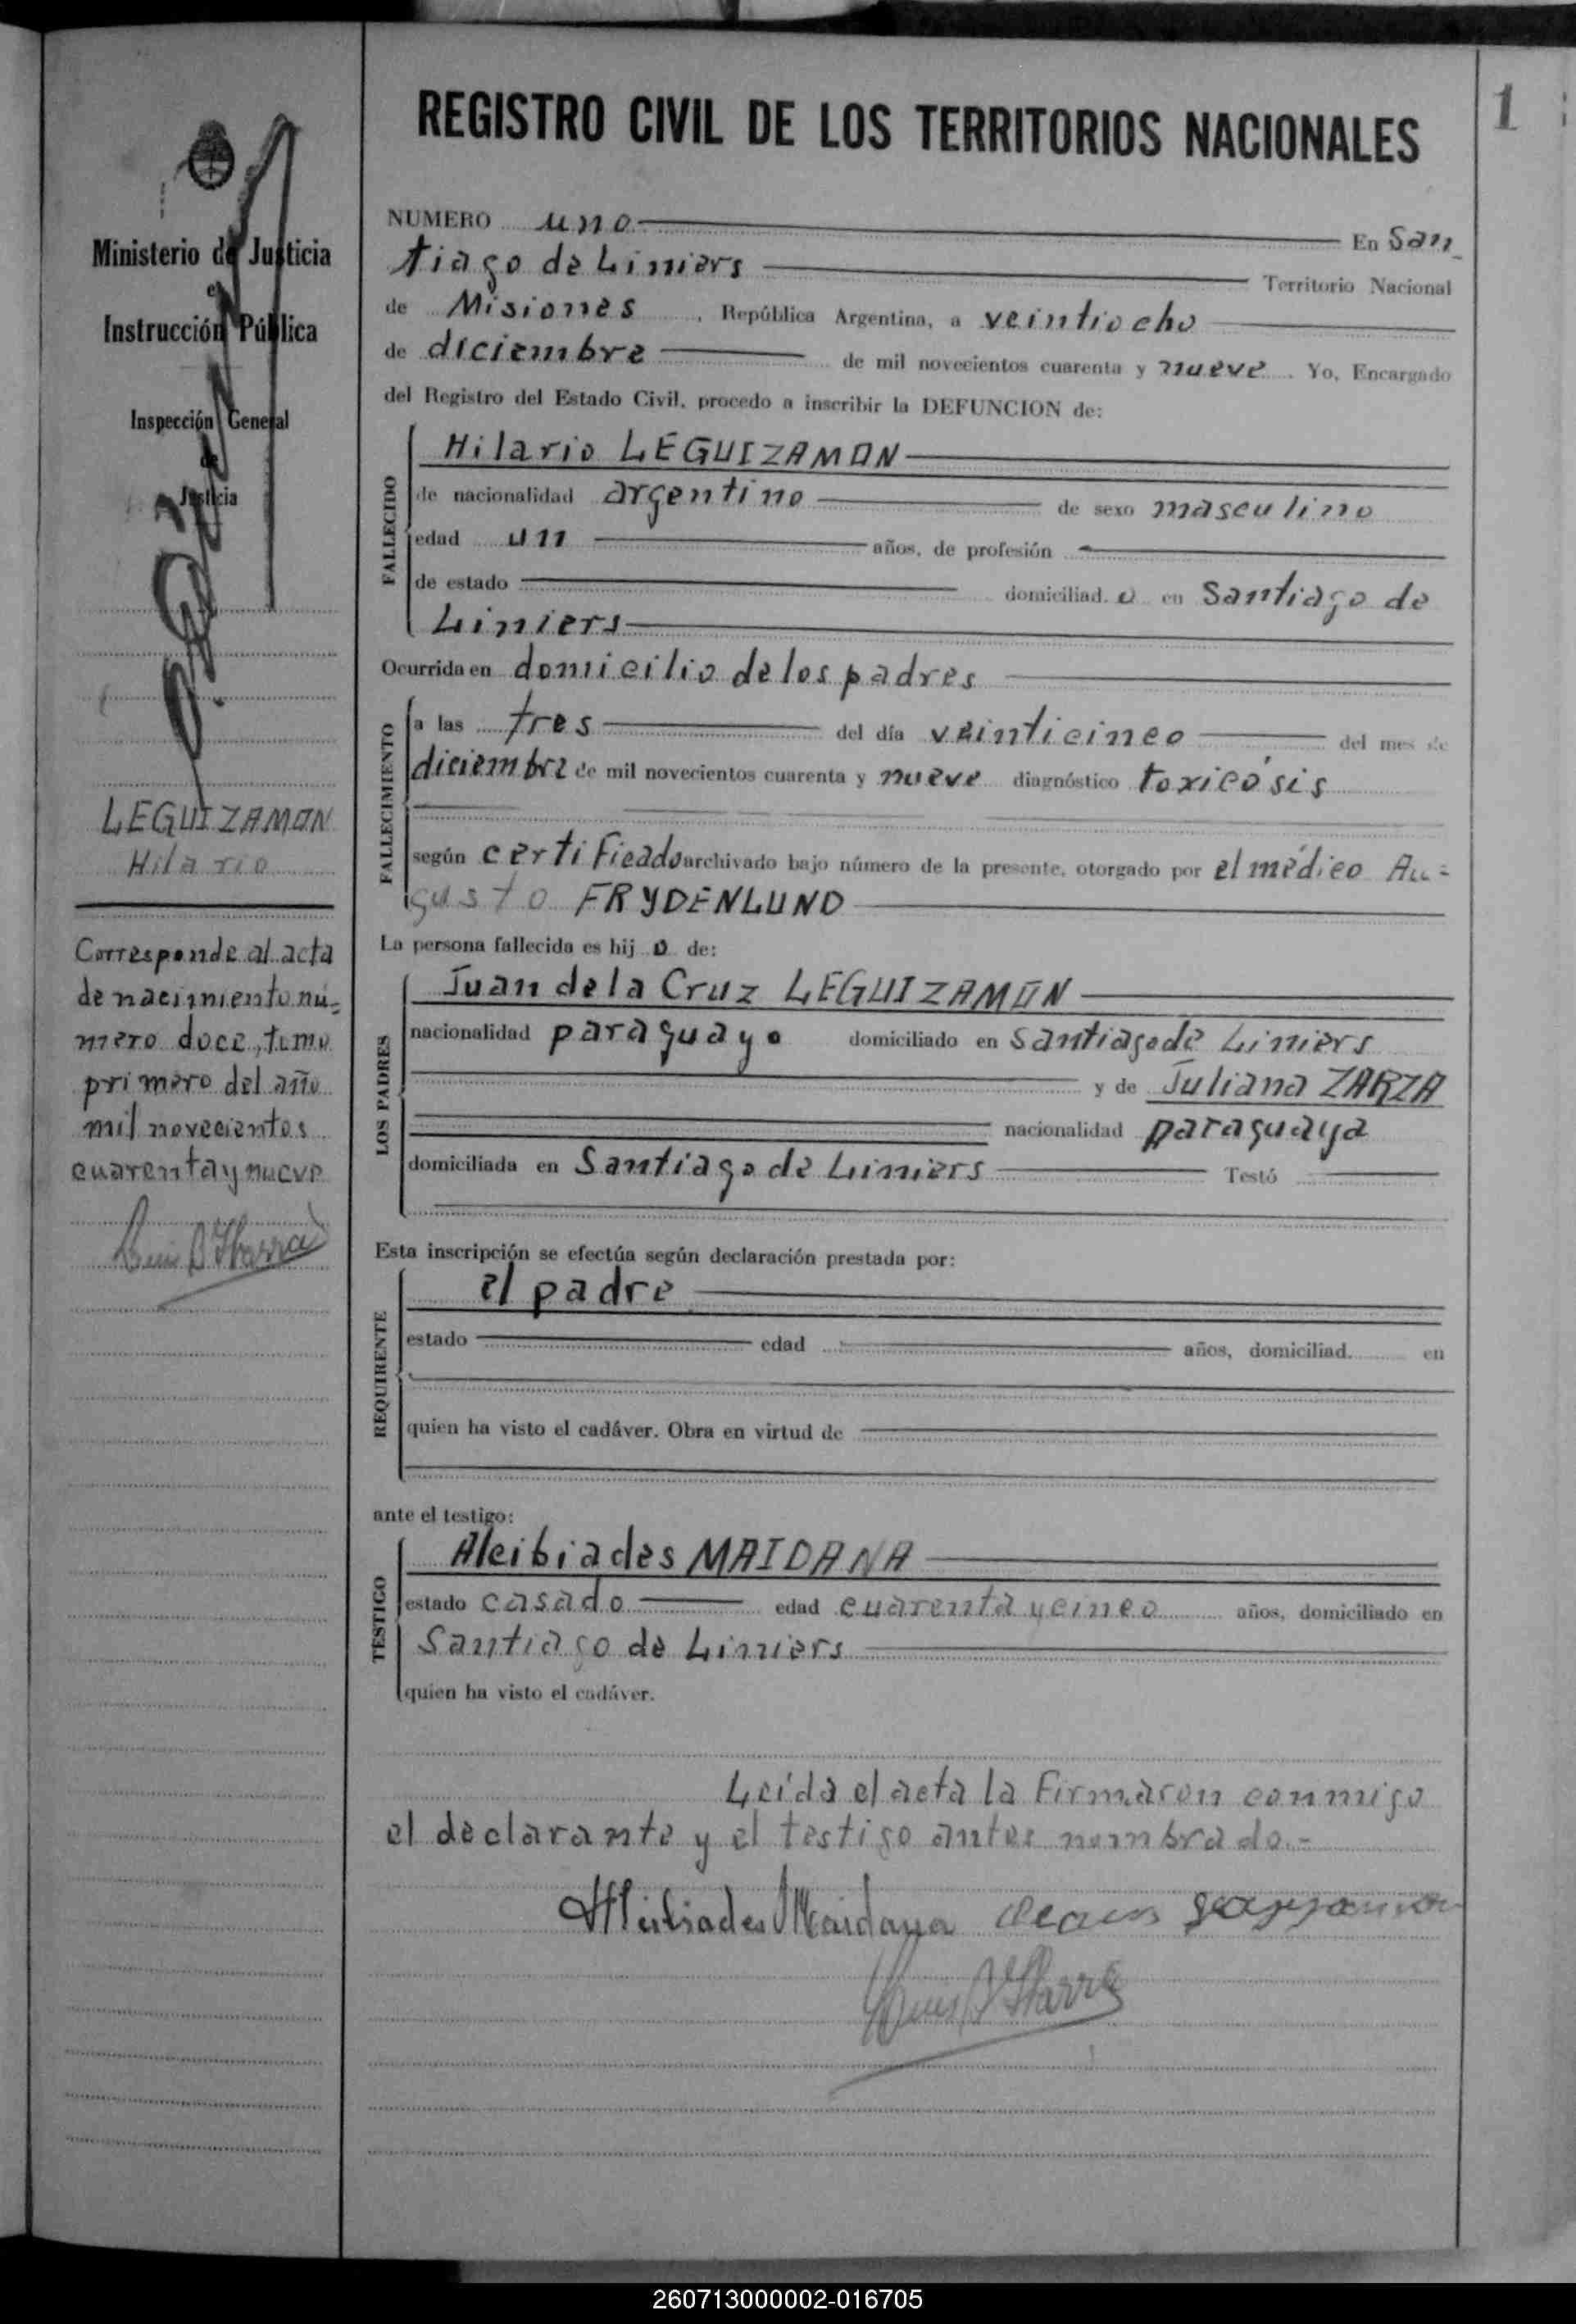 1
REGISTRO CIVIL DE LOS TERRITORIOS NACIONALES
Ministerio de Justicia
e
Instrucción Pública
Inspección General
de
Justicia
LEGUIZAMON
Hilario
Corresponde al acta
de nacimiento nú-
mero doce, tomo
primero del año
mil novecientos
cuarenta y nueve
Luis A Ibarra
NUMERO uno En San
tiago de Liniers Territorio Nacional
de Misiones, República Argentina, a veintiocho
de diciembre de mil novecientos cuarenta y nueve. Yo, Encargado
del Registro del Estado Civil, procedo a inscribir la DEFUNCION de:
FALLECIDO
Hilario LEGUIZAMON
de nacionalidad argentino de sexo masculino
edad un años, de profesión
de estado domiciliad o en Santiago de
Liniers
Ocurrida en domicilio de los padres
FALLECIMIENTO
a las tres del día veinticinco del mes de
diciembre de mil novecientos cuarenta y nueve diagnóstico toxicósis
según certificado archivado bajo número de la presente, otorgado por el médico Au-
gusto FRYDENLUND
La persona fallecida es hij o de:
LOS PADRES
Juan de la Cruz LEGUIZAMON
nacionalidad paraguayo domiciliado en Santiago de Liniers
y de Juliana ZARZA
nacionalidad paraguaya
domiciliada en Santiago de Liniers Testó
Esta inscripción se efectúa según declaración prestada por:
REQUIRENTE
el padre
estado edad años, domiciliad. en
quien ha visto el cadáver. Obra en virtud de
ante el testigo:
TESTIGO
Alcibiades MAIDANA
estado casado edad cuarenta y cinco años, domiciliado en
Santiago de Liniers
quien ha visto el cadáver.
Leída el acta la firmaron conmigo
el declarante y el testigo antes nombrado.-
Alcibiades Maidana
Luis A Ibarra
260713000002-016705